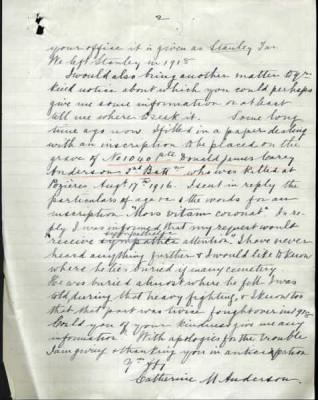 2
your office it is given as Stanley Tas
We left Stanley in 1918
I would also bring another matter to yr
kind notice about which you could perhaps
give me some information or at least
tell me where to seek it. Some long
time ago now I filled in a paper dealing
with an inscription to be placed on the
grave of No 1040 pte Donald James Carey
Anderson 2nd Battn who was killed at
Pozières Augt 17th 1916. I sent in reply the
particulars of age &c & the words for an
inscription "Mors vitam coronat" In re-
ply I was informed that my request would
sympathetic
receive sympathetic attention." I have never
heard anything further & I would like to know
where he lies buried if in any cemetery
He was buried almost where he fell I was
told, during that heavy fighting, & I know too
that that part was twice fought over in 1918
Could you of your kindness give me any
information With apologies for the trouble
I am giving & thanking you in anticipation
Yrs ffy
Catherine M Anderson.